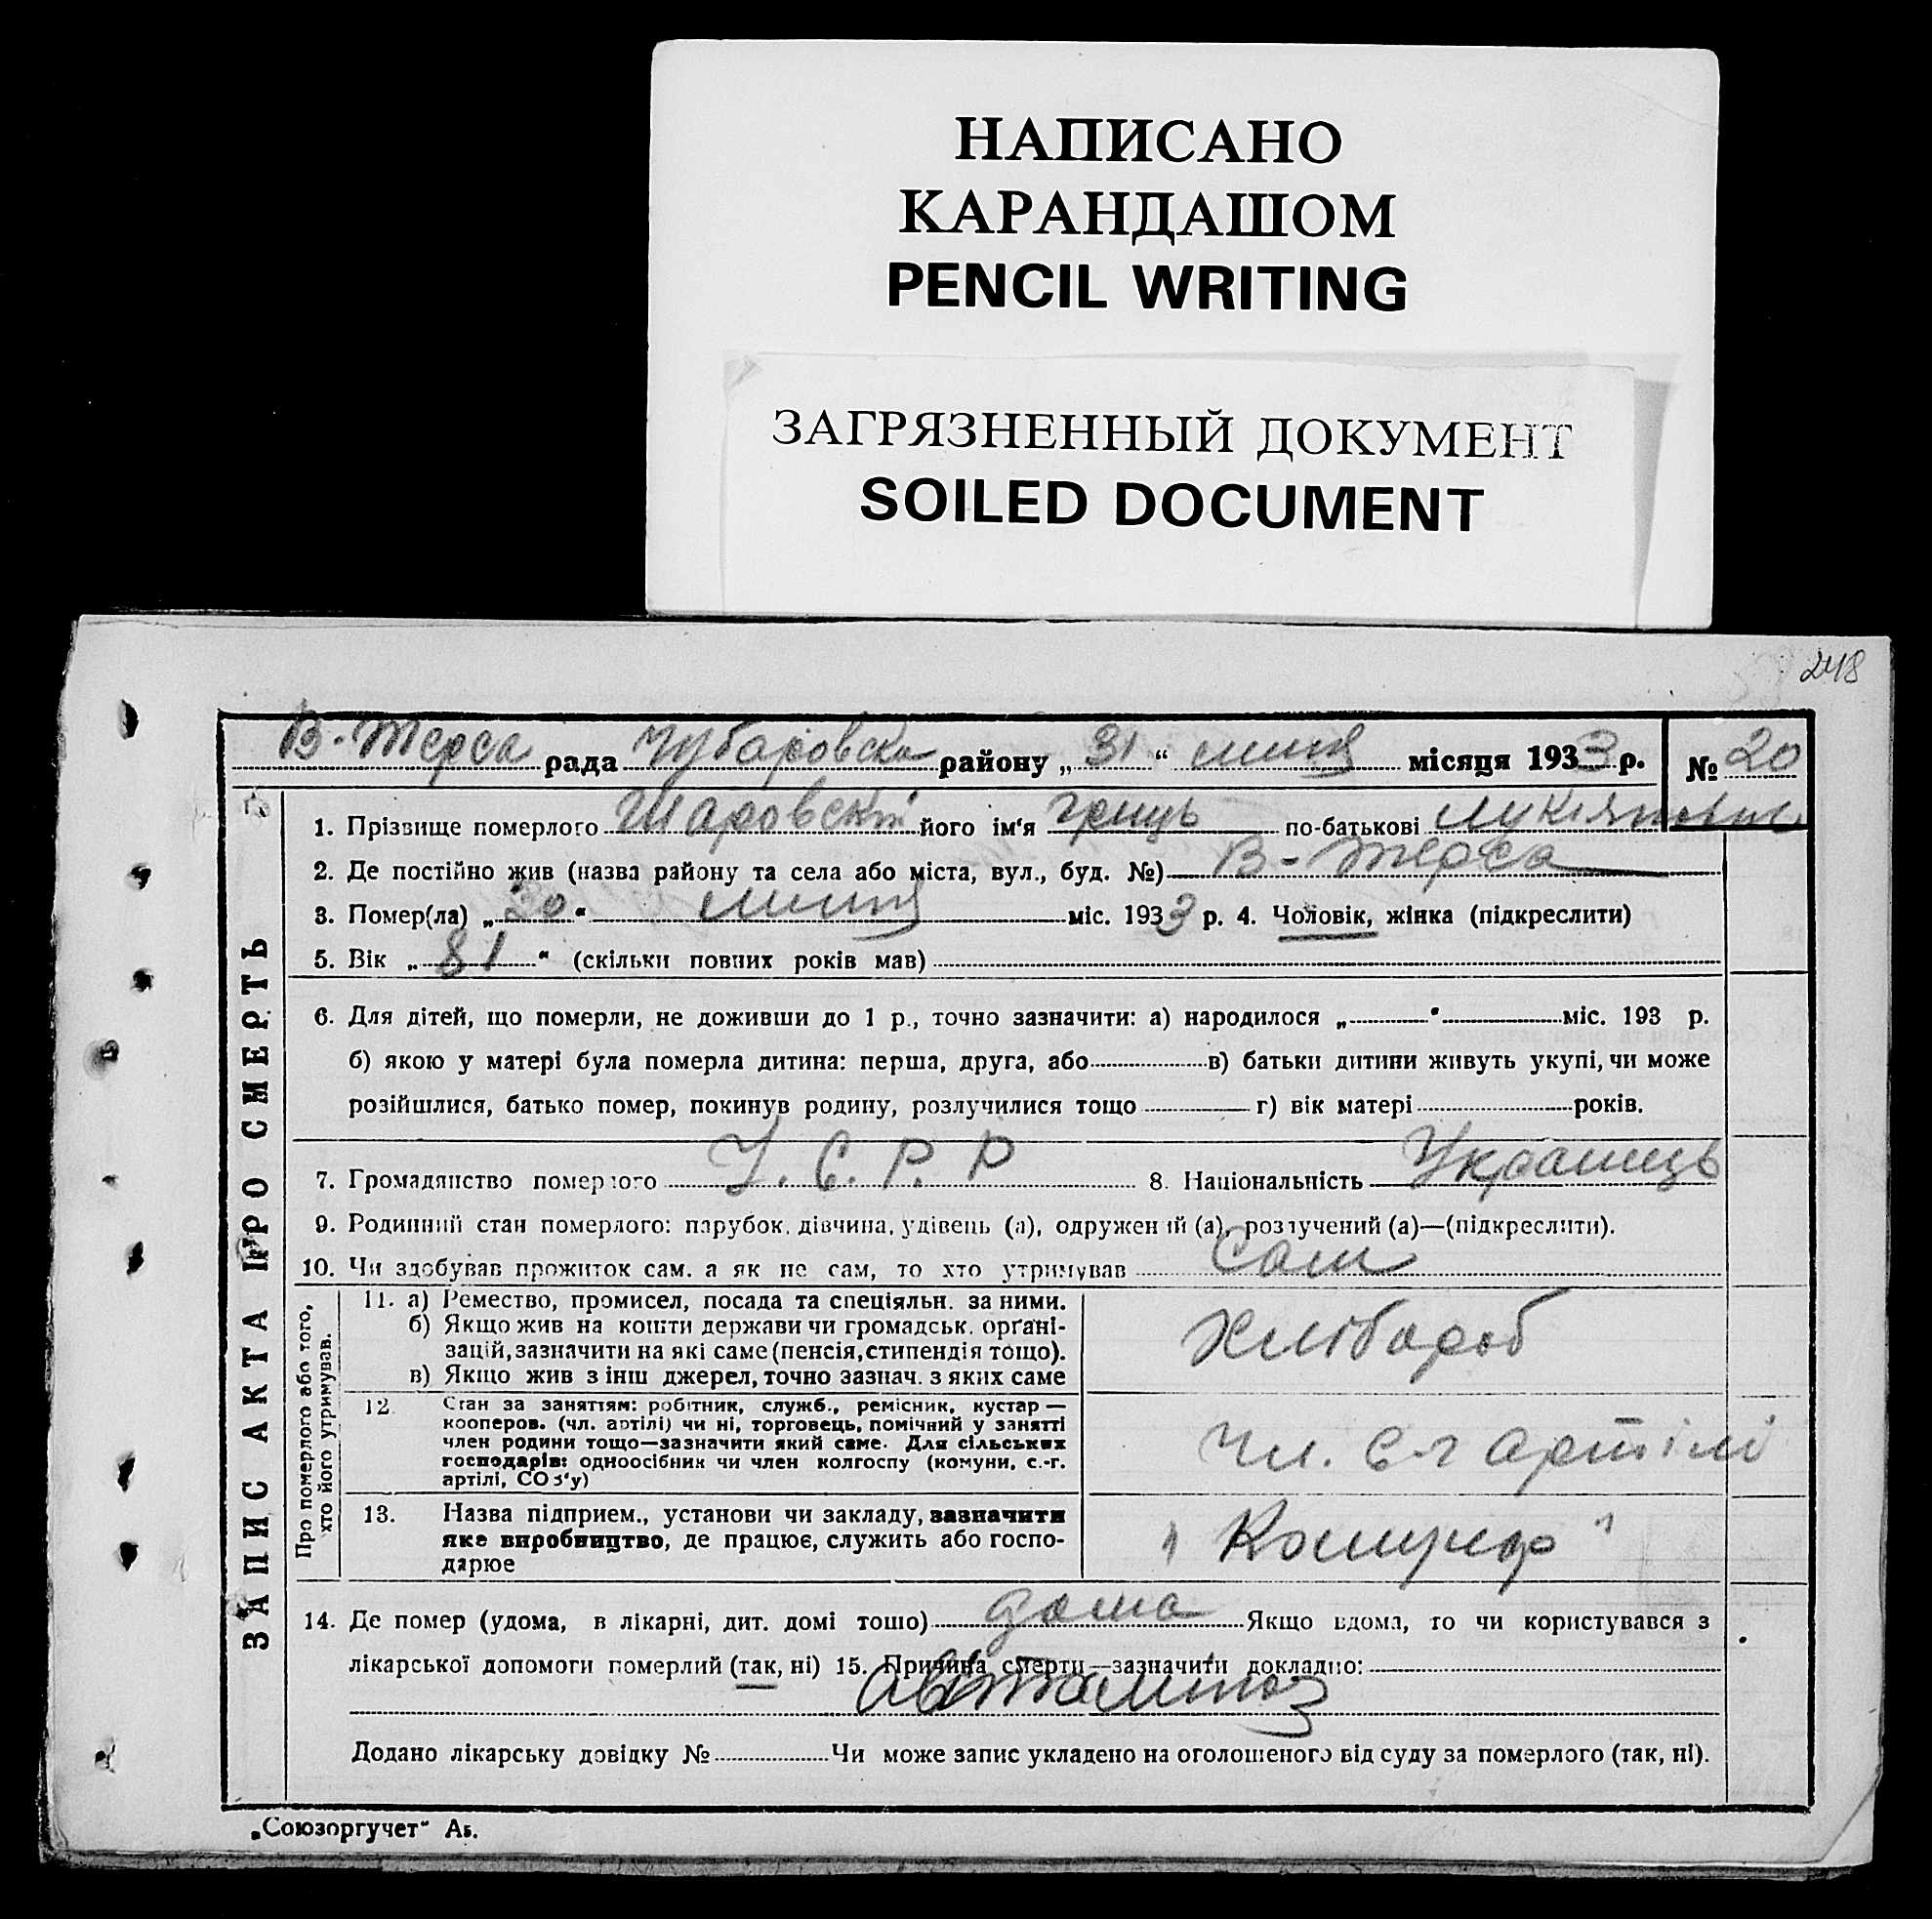 НАПИСАНО
КАРАНДАШОМ
PENCIL WRITING
ЗАГРЯЗНЕННЫЙ ДОКУМЕНТ
SOILED DOCUMENT
248
В-Терса рада Чубаровска району „31“ липня місяця 1933 р. № 20
ЗАПИС АКТА ПРО СМЕРТЬ
1. Прізвище померлого Шаровский його ім'я Гриць по-батькові Лукіянович
2. Де постійно жив (назва району та села або міста, вул., буд. №) В-Терса
3. Помер(ла) „30“ липня міс. 1933 р. 4. Чоловік, жінка (підкреслити)
5. Вік „81“ (скільки повних років мав)
6. Для дітей, що померли, не доживши до 1 р., точно зазначити: а) народилося „ “ міс. 193 р.
б) якою у матері була померла дитина: перша, друга, або в) батьки дитини живуть укупі, чи може
розійшлися, батько помер, покинув родину, розлучилися тощо г) вік матері років.
7. Громадянство померлого У.С.Р.Р 8. Національність Украинць
9. Родинний стан померлого: парубок, дівчина, удівець (а), одружений (а), розлучений (а)—(підкреслити).
10. Чи здобував прожиток сам, а як не сам, то хто утримував Сам
Про померлого або того,
хто його утримував.
11. а) Ремество, промисел, посада та спеціяльн. за ними.
б) Якщо жив на кошти держави чи громадськ. орґані-
зацій, зазначити на які саме (пенсія, стипендія тощо).
в) Якщо жив з інш джерел, точно зазнач. з яких саме
Хлібороб
12. Стан за заняттям: робітник, служб., ремісник, кустар —
кооперов. (чл. артілі) чи ні, торговець, помічний у занятті
член родини тощо—зазначити який саме. Для сільських
господарів: одноосібник чи член колгоспу (комуни, с.-г.
артілі, СОЗ'у)
Чл. с-г артілі
13. Назва підприєм., установи чи закладу, зазначити
яке виробництво, де працює, служить або госпо-
дарює
„Комунар“
14. Де помер (удома, в лікарні, дит. домі тощо) дома Якщо вдома, то чи користувався з
лікарської допомоги померлий (так, ні) 15. Причина смерти—зазначити докладно:
Авітаміноз
Додано лікарську довідку № Чи може запис укладено на оголошеного від суду за померлого (так, ні).
„Союзоргучет“ Аб.